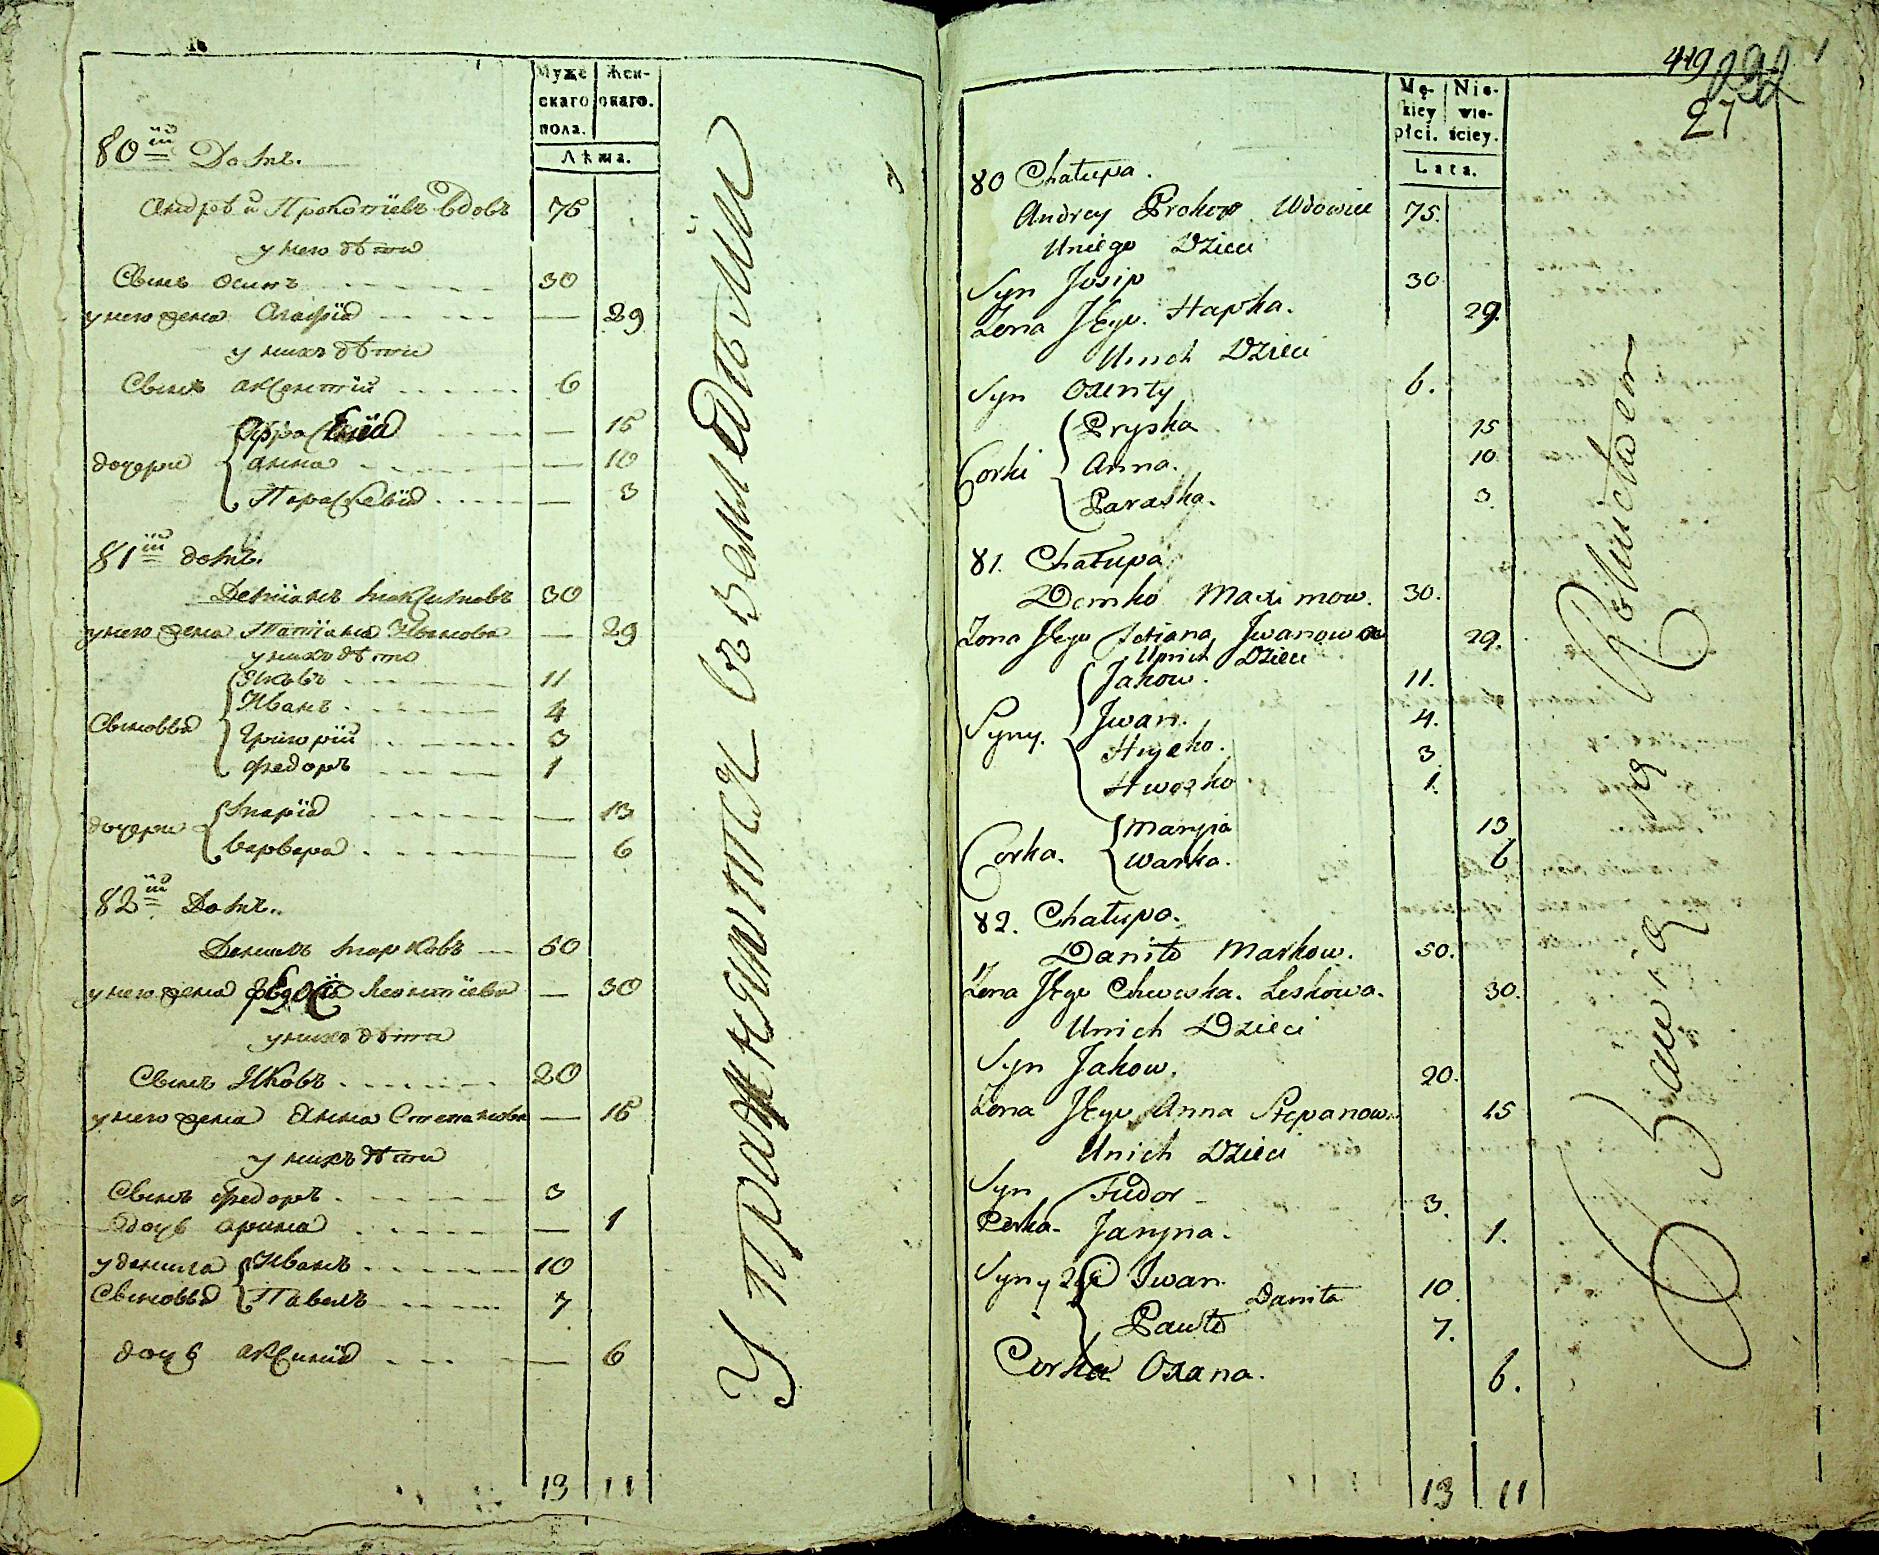 Муже Жен-
скаго скаго.
пола.
Лѣта.
80 ій Домъ.
Андрѣй Прокопіевъ вдовъ 75
у него дѣти
Сынъ Осипъ 30
у него жена Агафія — 29
у нихъ дѣти
Сынъ Аксентій 6
дочери Афросинія — 15
Анна — 10
Параскевія — 3
81 ій домъ.
Деміанъ Максимовъ 30
у него жена Татіана Иванова — 29
у нихъ дѣти
Яковъ 11
Сыновья Иванъ 4
Григорій 3
Федоръ 1
дочери Марія — 13
Варвара — 6
82 ій Домъ.
Данилъ Марковъ — 50
у него жена Феодосія Леонтіева — 30
у нихъ дѣти
Сынъ Яковъ 20
у него жена Анна Степанова — 15
у нихъ дѣти
Сынъ Федоръ 3
дочь Арина — 1
у Данила Иванъ 10
Сыновья Павелъ 7
дочь Аксинія — 6
13 11
Упражняются въ Земледѣліи
419
27
Mę- Nie-
kiey wie-
płci. ściey.
Lata.
80 Chałupa.
Andrey Prokop Wdowiec 75.
Uniego Dzieci
Syn Josip 30
Zona Jego Hapka. 29.
Unich Dzieci
Syn Oxenty 6.
Corki Pryska 15
Anna. 10
Paraska. 3.
81. Chałupa
Demko Maximow. 30.
Zona Jego Tatiana Jwanowa 29.
Unich Dzieci
Jakow. 11.
Syny. Jwan. 4.
Hryćko. 3
Hwedko 1.
Corka. Maryia 13
Warka. 6
82. Chałupa.
Daniło Markow. 50.
Zona Jego Chweska. Leskowa. 30.
Unich Dzieci
Syn Jakow. 20.
Zona Jego Anna Stepanow. 15
Unich Dzieci
Syn Fudor 3.
Corka Jaryna. 1.
Syny Jwan 10
Daniła
Pawło 7.
Corka Oxana. 6.
13 11
Bawią się Rolnictwem